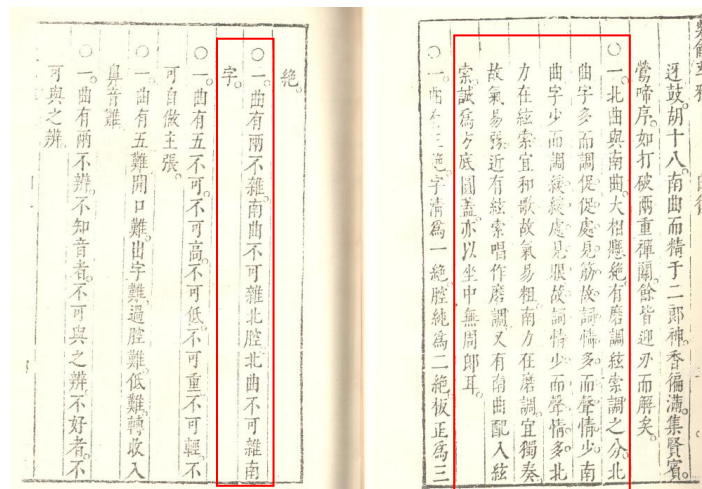 迓鼓。胡十八。南曲而精于二郎神。香徧滿。集賢賓。
鶯啼序。如打破兩重禪關。餘皆迎刃而解矣。
○一。北曲與南曲。大相懸絕。有磨調絃索調之分。北
曲字多而調促。促處見筋。故詞情多而聲情少。南
曲字少而調緩。緩處見眼。故詞情少而聲情多。北
力在絃索。宜和歌。故氣易粗。南力在磨調。宜獨奏。
故氣易弱。近有絃索唱作磨調。又有南曲配入絃
索。誠爲方底圓蓋。亦以坐中無周郎耳。
○一。曲有三絕。字清爲一絕。腔純爲二絕。板正爲三
絕。
○一。曲有兩不雜。南曲不可雜北腔。北曲不可雜南
字。
○一。曲有五不可。不可高。不可低。不可重。不可輕。不
可自做主張。
○一。曲有五難。開口難。出字難。過腔難。低難。轉收入
鼻音難。
○一。曲有兩不辨。不知音者。不可與之辨。不好者。不
可與之辨。